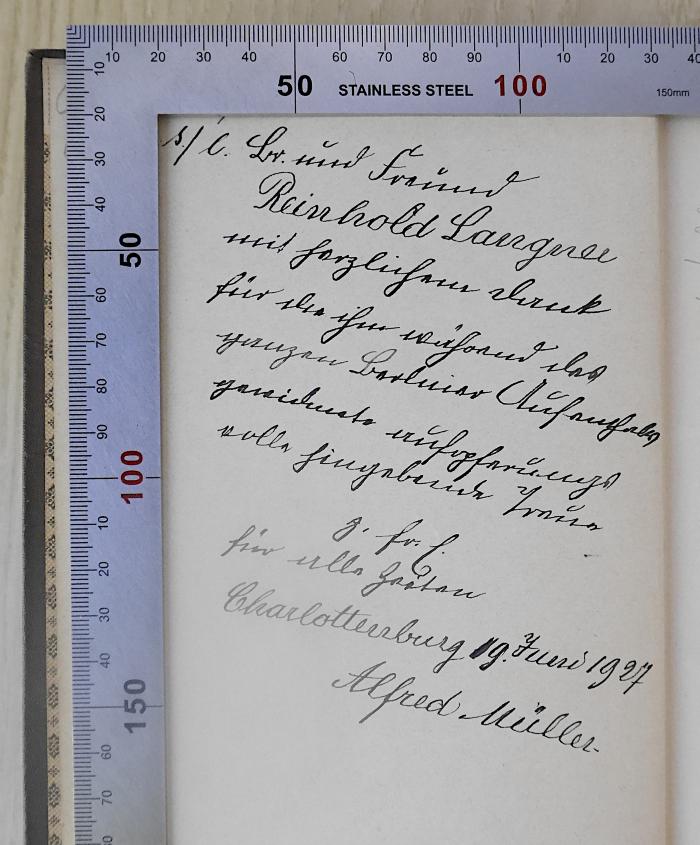 10 20 30 40 50 60 70 80 90 100 10 20 30 40
STAINLESS STEEL
150mm
10 20 30 40 50 60 70 80 90 100 10 20 30 40 150 60 70 80
s/ l. Br. und Freund
Reinhold Langner
mit herzlichem Dank
für die ihm während des
ganzen Berliner Aufenthalts
gewidmete aufopferungs
volle hingebende Treue
z. fr. E.
für alle Zeiten
Charlottenburg 19. Juni 1927
Alfred Müller